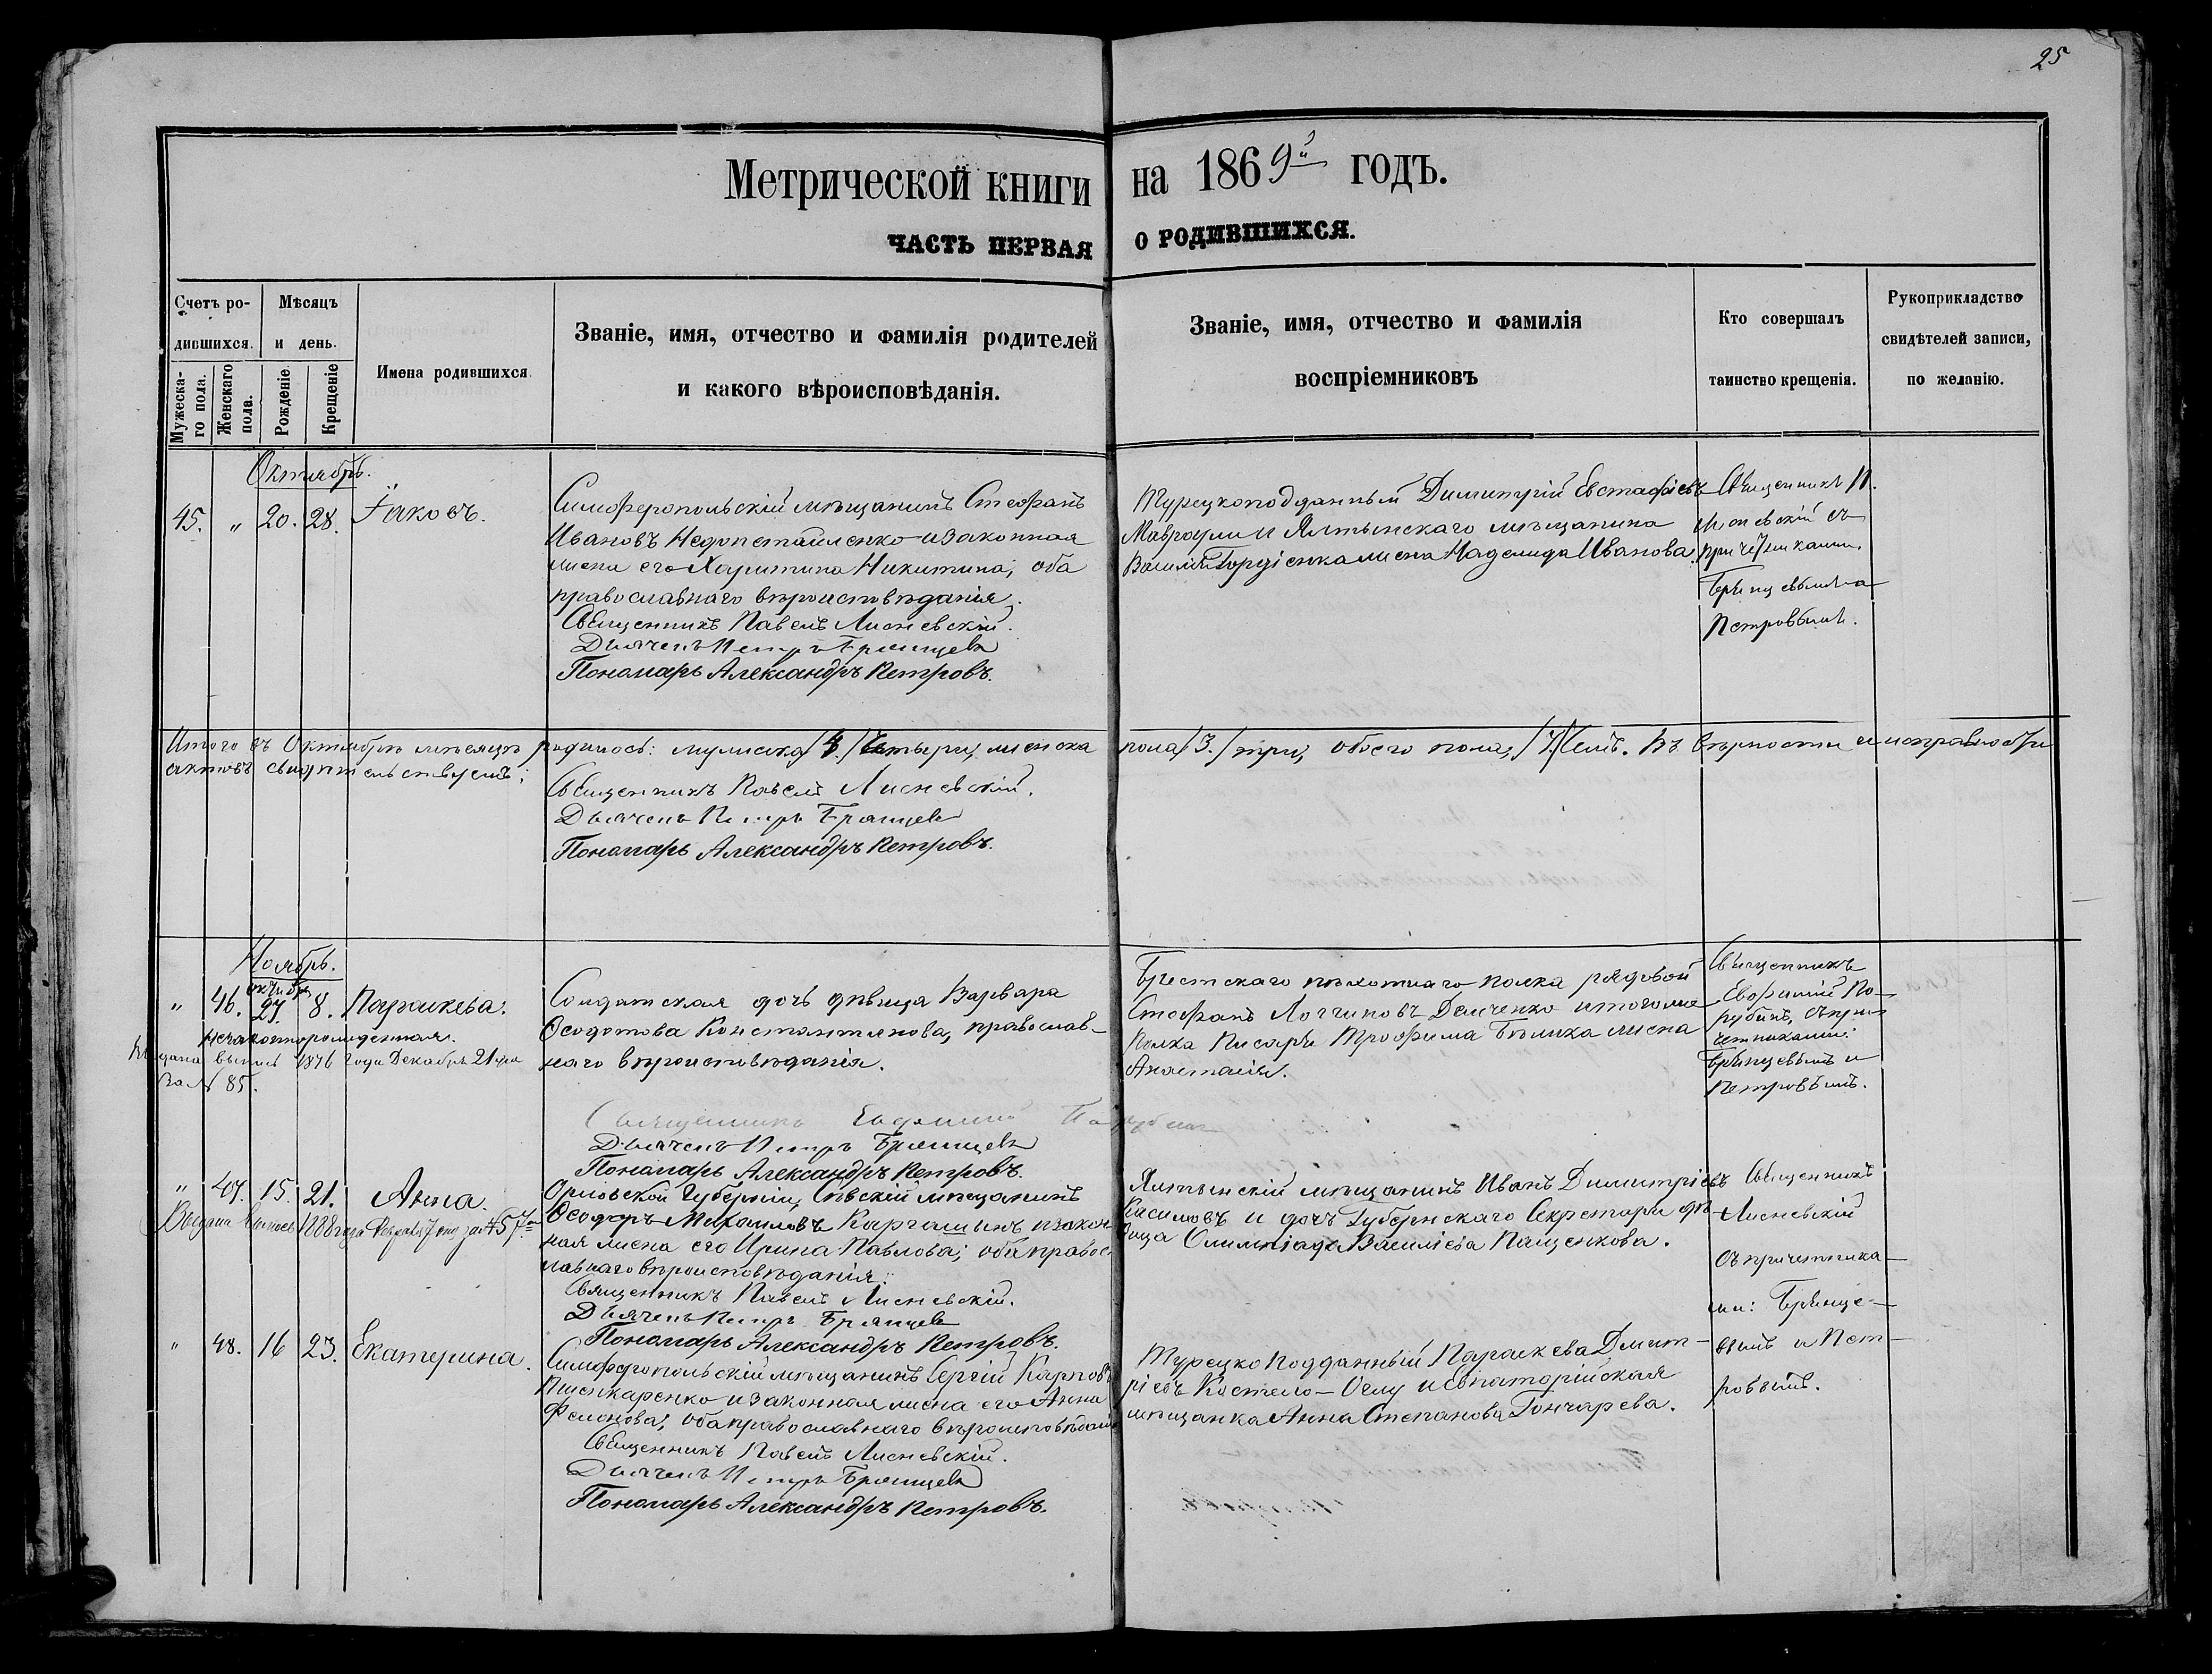 25
Метрической книги на 1869й годъ.
ЧАСТЬ ПЕРВАЯ О РОДИВШИХСЯ.
Счетъ ро-
дившихся.
Мужеска-
го пола.
Женскаго
пола.
Мѣсяцъ
и день.
Рожденіе
Крещеніе
Имена родившихся
Званіе, имя, отчество и фамилія родителей
и какого вѣроисповѣданія.
Званіе, имя, отчество и фамилія
воспріемниковъ
Кто совершалъ
таинство крещенія.
Рукоприкладство
свидѣтелей записи,
по желанію.
Октябрь.
45. " 20. 28. Іаковъ.
Симферопольскій мѣщанинъ Стефанъ
Ивановъ и законная
жена его Харитина Никитина; оба
православнаго вѣроисповѣданія.
Священникъ Павелъ Лисневскій.
Дьячекъ Петръ Брянцевъ
Пономарь Александръ Петровъ.
Турецкоподданный Димитрій Евстафіевъ
Мавраули и Ялтинскаго мѣщанина
Василія Гордіенка жена Надежда Иванова.
Священникъ П.
Лисневскій съ
причетниками
Брянцевымъ и
Петровымъ.
Итого въ Октябрѣ мѣсяцѣ родилось: мужска /4./ четыри, женска пола /3./ три, обоего пола, /7./ Семь. Въ вѣрности и исправности
актовъ свидѣтельствуемъ:
Священникъ Павелъ Лисневскій.
Дьячекъ Петръ Брянцевъ
Пономарь Александръ Петровъ.
Ноябрь.
октября
" 46. 27. 8. Параскева.
незаконнорожденная.
Выдана выпись 1876 года Декабря 21 дня
за № 85.
Солдатская дочь дѣвица Варвара
Ѳеодотова Константинова, православ-
наго вѣроисповѣданія.
Священникъ Евфимій
Дьячекъ Петръ Брянцевъ
Пономарь Александръ Петровъ.
Брестскаго пѣхотнаго полка рядовой
Стефанъ Логгиновъ Демченко и тогоже
Полка Писаря Трофима Бѣлика жена
Анастасія.
Священникъ
Евфимій По-
рубинъ, съ при-
четниками:
Брянцевымъ и
Петровымъ.
" 47. 15. 21. Анна.
Выдана выпись 1888 года Февраля 7 дня за № 57
Орловской Губерніи, Сѣвскій мѣщанинъ
Ѳеодоръ Михаиловъ Каргашинъ и закон-
ная жена его Ирина Павлова; оба правос-
лавнаго вѣроисповѣданія.
Священникъ Павелъ Лисневскій.
Дьячекъ Петръ Брянцевъ
Пономарь Александръ Петровъ.
Ялтинскій мѣщанинъ Иванъ Димитріевъ
Касимовъ и дочь Губернскаго Секретаря дѣ-
вица Олимпіада Василіева Пащенкова.
Священникъ
Лисневскій
съ причетника-
ми: Брянце-
вымъ и Пет-
ровымъ.
" 48. 16 23. Екатерина.
Симферопольскій мѣщанинъ Сергій Карповъ
Пшенкаренко и законная жена его Анна
оба православнаго вѣроисповѣданія
Священникъ Павелъ Лисневскій.
Дьячекъ Петръ Брянцевъ
Пономарь Александръ Петровъ.
Турецко подданный Параскева Дмит-
ріевъ Костело-Оглу и Евпаторійская
мѣщанка Анна Степанова Гончарева.